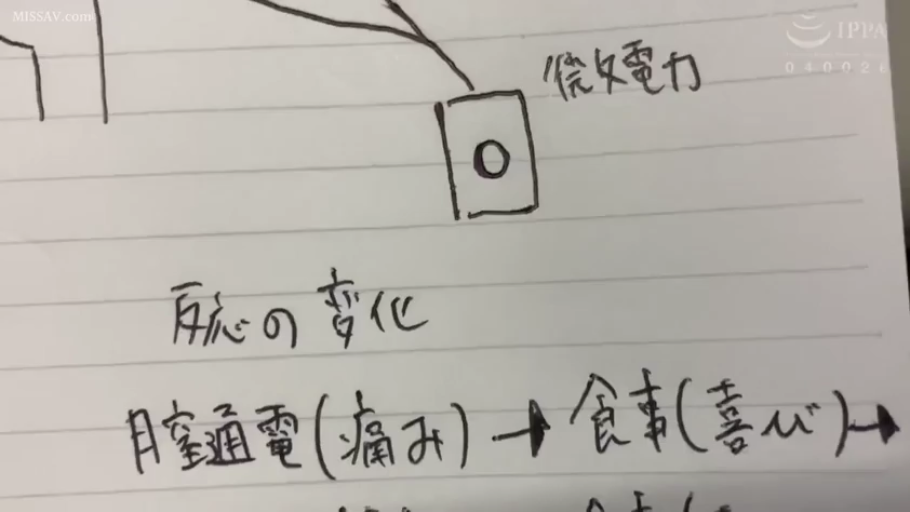 MISSAV.com
IPPA
微々電力
反応の変化
膣通電(痛み)→食事(喜び)→